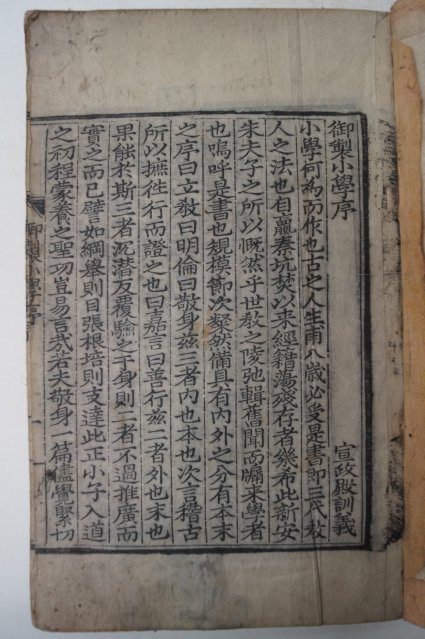 御製小學序
宣政殿訓義
小學何為而作也古之人生甫八歲必受是書即三代敎
人之法也自嬴秦坑焚以来經籍蕩殘存者幾希此新安
朱夫子之所以慨然乎世敎之陵弛輯舊聞而牖来學者
也嗚呼是書也規模節次粲然備具有内外之分有本末
之序曰立敎曰明倫曰敬身玆三者内也本也次言稽古
所以摭徃行而證之也曰嘉言曰善行玆二者外也末也
果能於斯三者沉潜反覆驗之于身則二者不過推廣而
實之而已譬如綱舉則目張根培則支達此正小子入道
之初程蒙養之聖功豈易言㢤若夫敬身一篇儘覺緊切
御製小學序